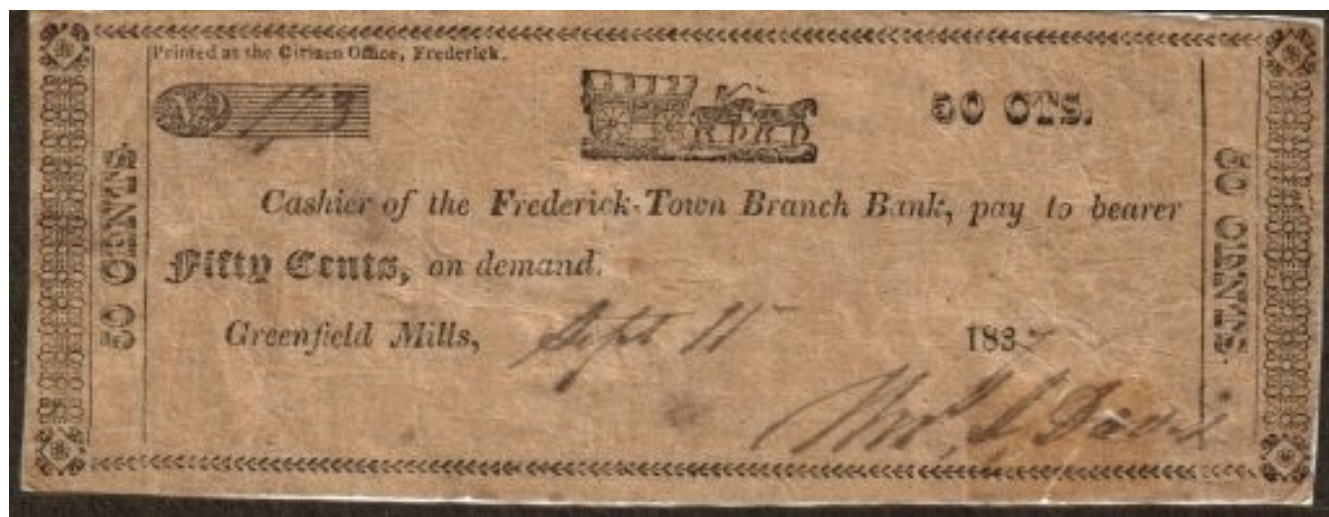 Printed at the Citizen Office, Frederick.
No 173
50 CTS.
Cashier of the Frederick-Town Branch Bank, pay to bearer
Fifty Cents, on demand.
Greenfield Mills, Sept 11 1837
50 CENTS
50 CENTS.